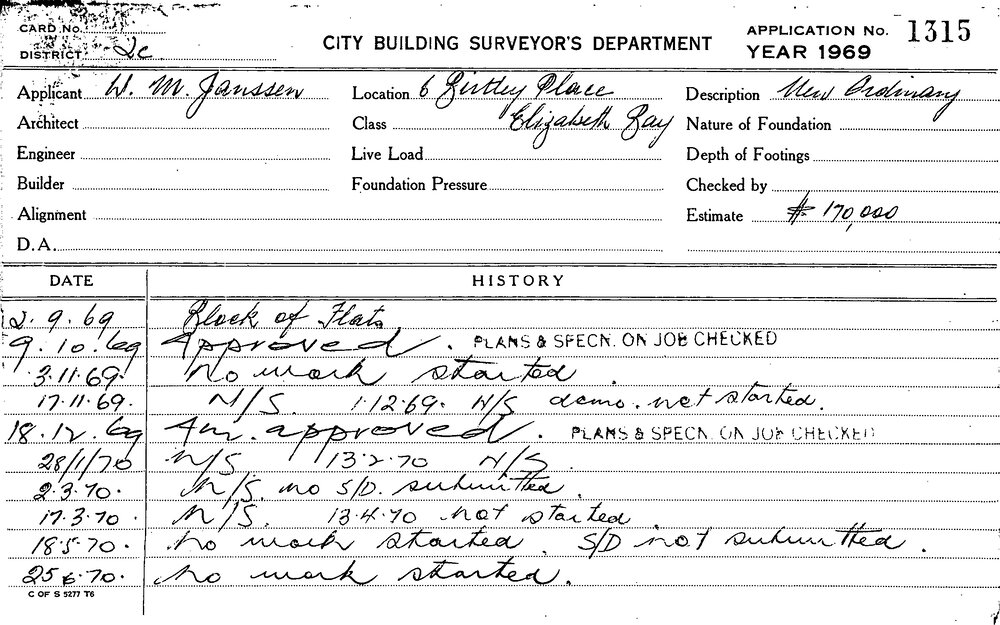 CARD No.
DISTRICT 2c
CITY BUILDING SURVEYOR'S DEPARTMENT
APPLICATION No. 1315
YEAR 1969
Applicant W. M. Janssen
Location 6 Birtley Place
Description New Ordinary
Architect
Class Elizabeth Bay
Nature of Foundation
Engineer
Live Load
Depth of Footings
Builder
Foundation Pressure
Checked by
Alignment
Estimate $ 170,000
D.A.
DATE HISTORY
2. 9. 69 Block of Flats
9. 10. 69 Approved. PLANS & SPECN. ON JOB CHECKED
3.11.69. No work started.
17.11.69. N/S. 1.12.69. N/S demo. not started.
18.12.69 Am. approved. PLANS & SPECN. ON JOB CHECKED
28/1/70 N/S 13.2.70 N/S.
2.3.70. N/S. no S/D. submitted.
17.3.70. N/S. 13.4.70 not started.
18.5.70. No work started. S/D not submitted.
25.6.70. No work started.
C OF S 5277 T6